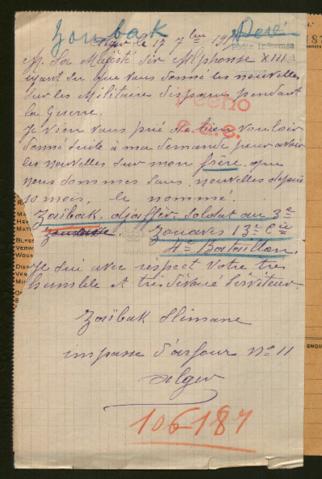 Zoubak
Alger le 17 7bre 191
M. Sa Majesté Sir Alphonse XIII
ayant lu que vous donné les nouvelles
sur les Militaire disparu pendant
la Guerre.
Je vien vous prié de bien vouloir
donné suite à ma demande pour avoir
les nouvelles sur mon frère que
nous sommes sans nouvelles depuis
10 mois, le nommé.
Zaïbak Djaffer Soldat au 3e
Zouaves 13e Cie
4e Bataillon.
Je sui avec respect votre très
humble et très dévoué serviteur
Zaïbak Slimane
impasse d'asfour No 11
Alger
106187